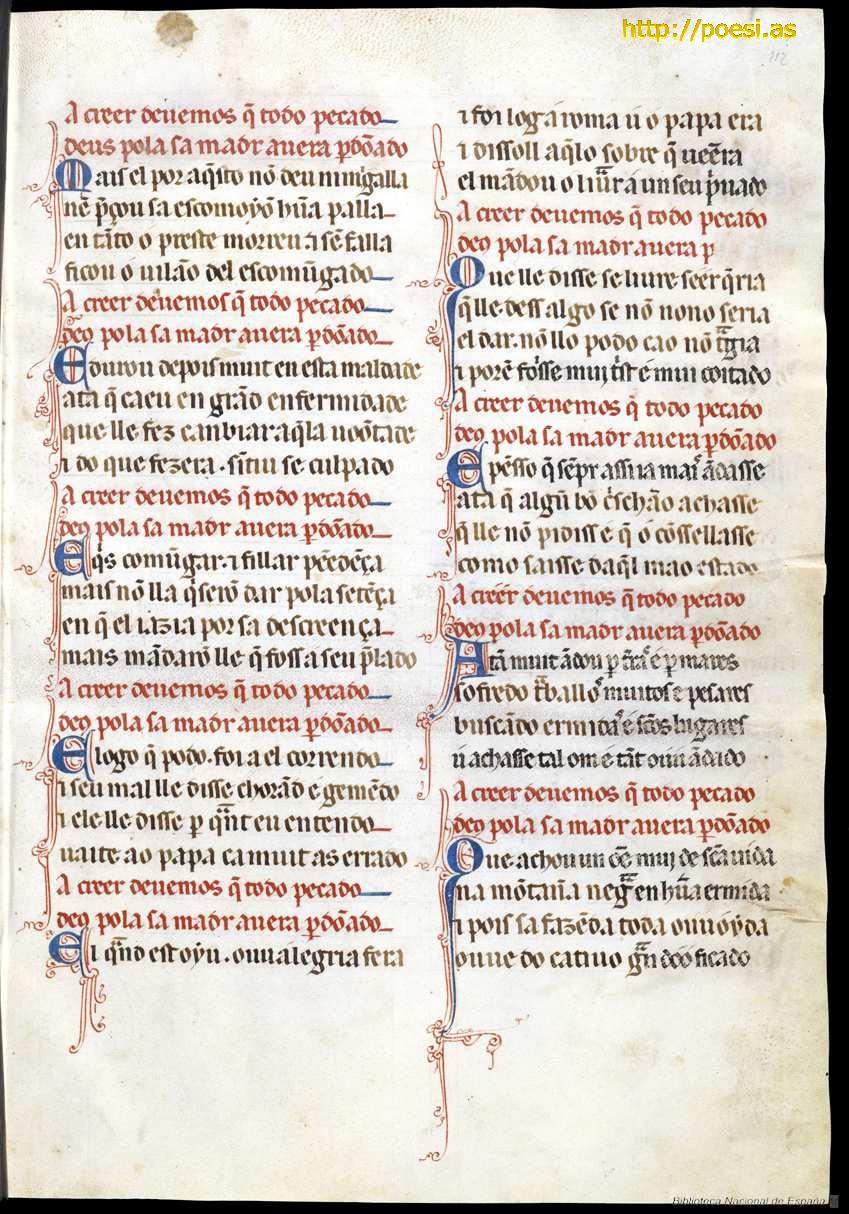 http://poesi.as
112
A creer deuemos q̃ todo pecado
deus pola sa madr auera ꝑdõado
Mais el por aq̃sto nõ deu nimigalla
nẽ p̃çou sa escomoyõ hũa palla
en tãto o preste morreu ⁊ sẽ falla
ficou o uilão del escomũgado
A creer deuemos q̃ todo pecado
deꝰ pola sa madr auera ꝑdõado
E durou depois muit en esta maldade
ata q̃ caeu en grãd enfermidade
que lle fez canbiar aq̃la uoõtade
⁊ do que fezera. sintiu se culpado
A creer deuemos q̃ todo pecado
deꝰ pola sa madr auera ꝑdõado
E q̉s comũgar ⁊ fillar pẽedẽça
mais nõ lla q̃serõ dar pola setẽça
en q̃ el iazia por sa descreença
mais mãdarõ lle q̃ foss a seu p̃lado
A creer deuemos q̃ todo pecado
deꝰ pola sa madr auera ꝑdõado
E logo q̃ podo. foi a el correndo
⁊ seu mal lle disse chorãd e gemẽdo
⁊ ele lle disse ꝑ quãnt eu entendo
uaite ao papa ca muit as errado
A creer deuemos q̃ todo pecado
deꝰ pola sa madr auera ꝑdõado
El quãd est oyu. ouu alegria fera
⁊ foi log a roma u o papa era
⁊ dissoll aq̃lo sobre q̃ uẽera
el mãdou o liurar a un seu p̉uado
A creer deuemos q̃ todo pecado
deꝰ pola sa madr auera ꝑ
Que lle disse se liure seer q̃ria
q̃ lle dess algo se nõ nono seria
el dar. nõ llo podo ca o nõ tragia
⁊ porẽ fosse mui trist e mui coitado
A creer deuemos q̃ todo pecado
deꝰ pola sa madr auera ꝑdõado
E pẽsso q̃ sẽpr assi ia mais ãdasse
ata q̃ algũ bõ crischão achasse
q̃ lle nõ pidiss e q̃ o cõssellasse
como saisse daq̃l mao estado
A creer deuemos q̃ todo pecado
deꝰ pola sa madr auera ꝑdõado
Atã muit ãdou ꝑ terras e ꝑ mares
sofredo traballos muitos e pesares
buscãdo ermidas e scõs lugares
u achasse tal om e tãt ouu ãdado
A creer deuemos q̃ todo pecado
deꝰ pola sa madr auera ꝑdõado
Que achou un oẽ mui de scã uida
na mõtaña negra en hũa ermida
⁊ pois sa fazẽda toda ouu oyda
ouue do catiuo gran doo ficado
Biblioteca Nacional de España